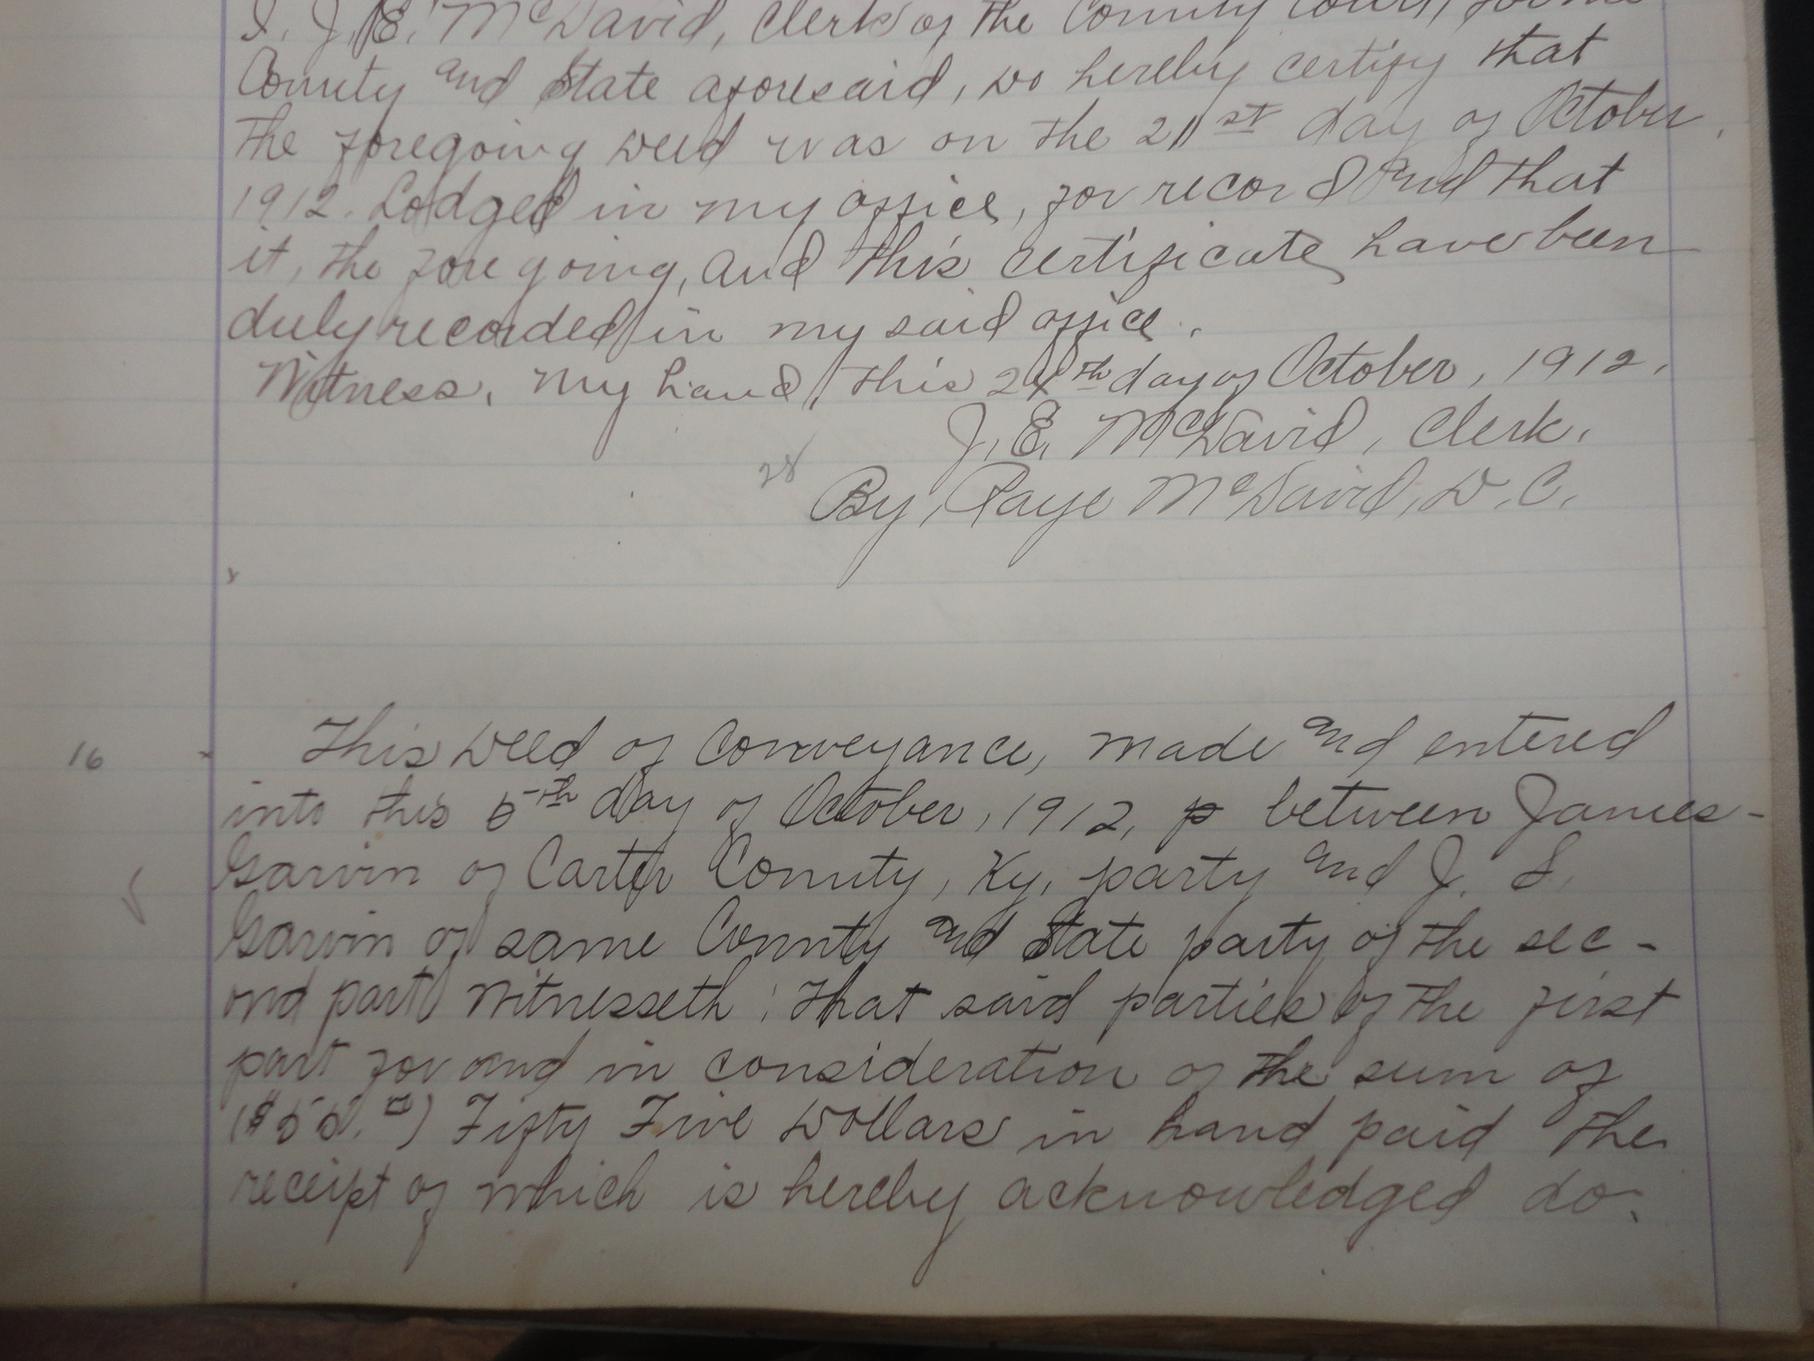 I, J. E. McDavid, Clerk of the County Court, for the
County and State aforesaid, do hereby certify that
the foregoing deed was on the 21st day of October
1912. Lodged in my office, for record and that
it, the fore going, and this certificate have been
duly recorded in my said office.
Witness, my hand, this 24th day of October, 1912.
J. E. McDavid, Clerk.
28
By, Faye McDavid, D.C.
16
This Deed of Conveyance, made and entered
into this 5th day of October, 1912, between James
Garvin of Carter County, Ky, party and J. S.
Garvin of same County and State party of the sec-
ond part Witnesseth: that said parties of the first
part for and in consideration of the sum of
($55.00) Fifty Five Dollars in hand paid the
receipt of which is hereby acknowledged do.